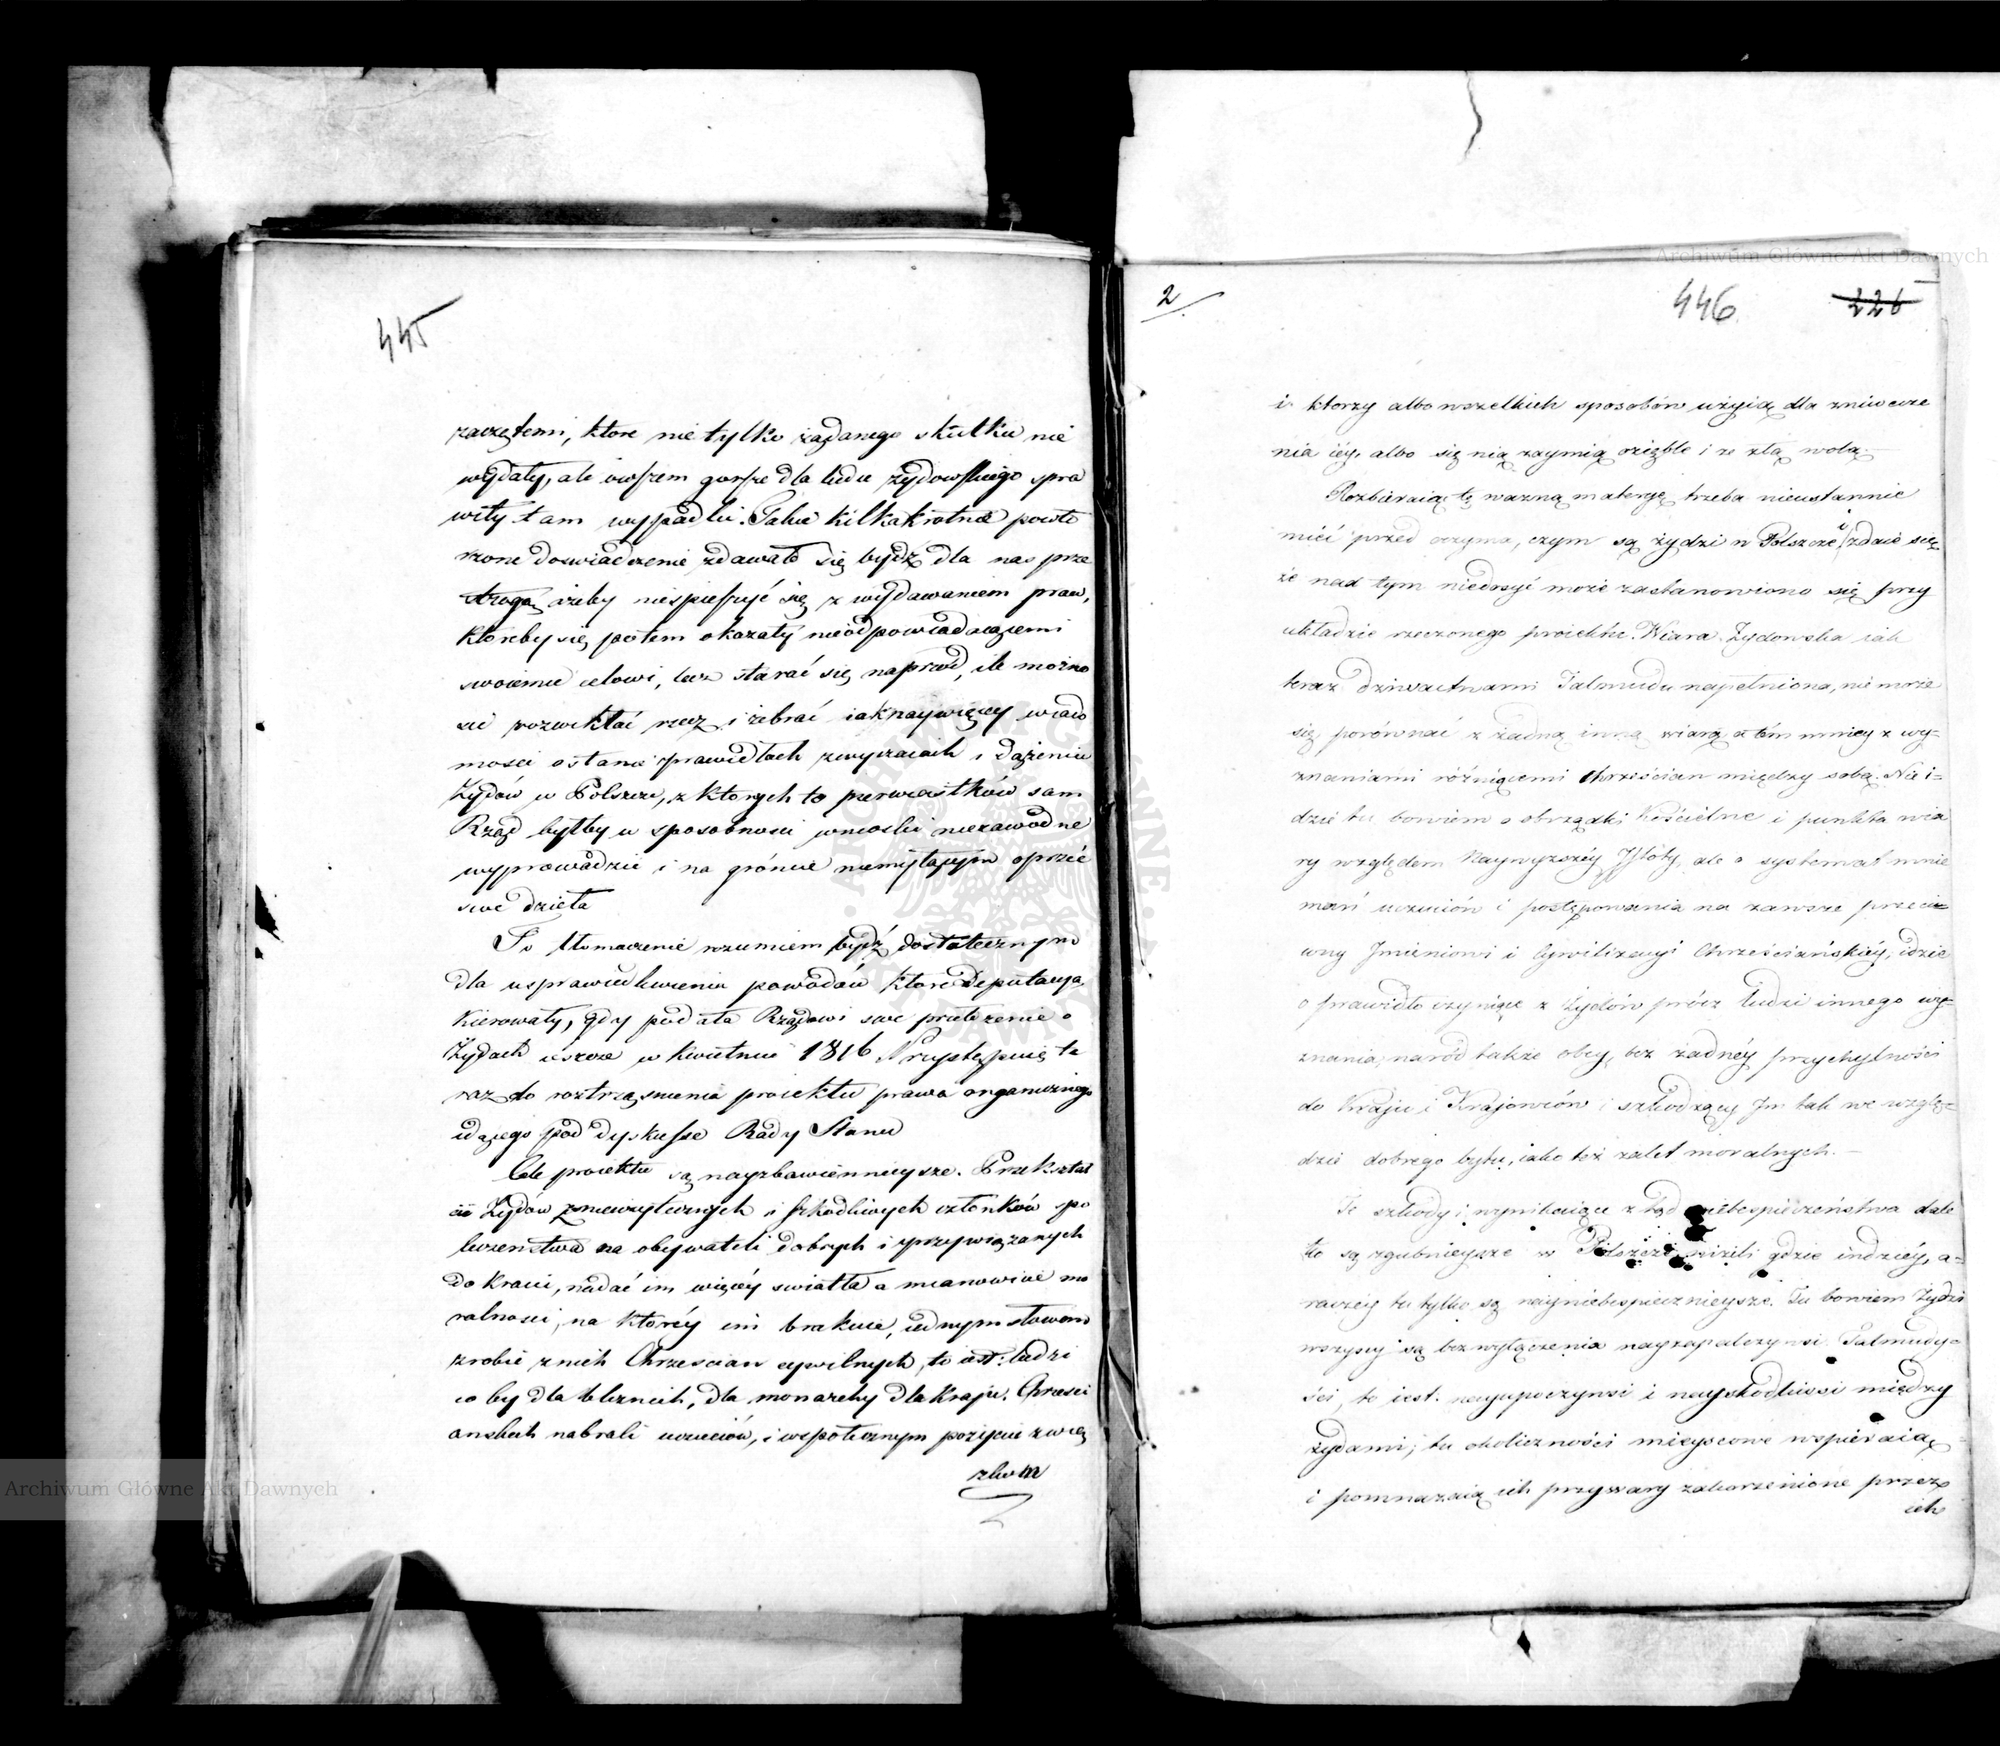 445
zaczętemi, ktore nie tylko żądanego skutku nie
wydały, ale owszem gorsze dla ludu żydowskiego spra
wiły tam wypadki. Takie kilkakrotnie powto
rzone doswiadczenie zdawało się bydź dla nas prze
strogą, ażeby niespieszyć się z wydawaniem praw,
ktoreby się potem okazały nieodpowiadaiącemi
swoiemu celowi, lecz starać się naprzod, ile można
rozwikłać rzecz i zebrać iaknaywięcey wiado
mosci o stanie prawidłach zwyczaiach i dążeniu
Żydów w Polszcze, z ktorych to pierwiastków sam
Rząd byłby w sposobnosci wnioski niezawodne
wyprowadzić i na gróncie niemylącym oprzéć
swe dzieła
To tłomaczenie rozumiem bydź dostatecznym
dla usprawiedliwienia powodów ktore Deputacyą
kierowały, gdy podała Rządowi swe przełożenie o
Żydach ieszcze w Kwietniu 1816 Przystępuię te
raz do roztrząsnienia proiektu prawa organicznego
idącego pod dyskusse Rady Stanu
Cele proiektu są nayzbawiennieysze. Przekształ
cić Żydów z nieużytecznych i szkodliwych członków spo
łeczenstwa na obywateli dobrych i przywiązanych
do Kraiu, nadać im więcéy swiatła a mianowicie mo
ralnosci, na któréy im brakuie, iednym słowem
zrobić z nich Chrzescian cywilnych, to iest: ludzi
co by dla bliznich, dla monarchy dla Kraju, Chrzesci
anskich nabrali uczuciów, i wspołecznym pożyciu zwią
zkom
2
446
226
i ktorzy albo wszelkich sposobów użyią dla zniwecze
nia iéy, albo się nią zaymią ozięble i ze złą wolą.—
Rozbieraiąc tę ważną materyę, trzeba nieustannie
mieć przed oczyma, czym są żydzi w Polszcze, zdaie się,
że nad tym niedosyć może zastanowiono się przy
układzie rzeczonego proiektu. Wiara Żydowska iak
teraz dziwactwami Talmudu napełniona, nie może
się porównać z żadną inną wiarą a tém mniey z wy-
znaniami różniącemi Chrześcian między sobą. Nie i-
dzie tu bowiem o obrządki Kościelne i punkta wia
ry względem Naywyższéy Jstoty, ale o systemat mnie
mań uczuciów i postępowania na zawsze przeci-
wny Jmieniowi i Cywilizacyi Chrześciańskiéy, idzie
o prawidło czyniące z Żydów prócz ludzi innego wy-
znania, naród także obcy, bez żadnéy przychylności
do Kraju i Krajowców i szkodzący Jm tak we wzglę-
dzie dobrego bytu, iako też zalet moralnych.—
Te szkody i wynikaiące z tąd niebespieczeństwa dale
ko są zgubnieysze w Polszcze niżeli gdzie indziéy, a-
raczéy tu tylko są nayniebespiecznieysze. Tu bowiem Żydzi
wszyscy są bez wyłączenia nayzapalczywsi Talmudy-
ści, to iest: nayuporczywsi i nayszkodliwsi między
żydami; tu okoliczności mieyscowe wspieraią
i pomnażaią ich przywary zakorzenione przez
ich
Archiwum Główne Akt Dawnych
Archiwum Główne Akt Dawnych